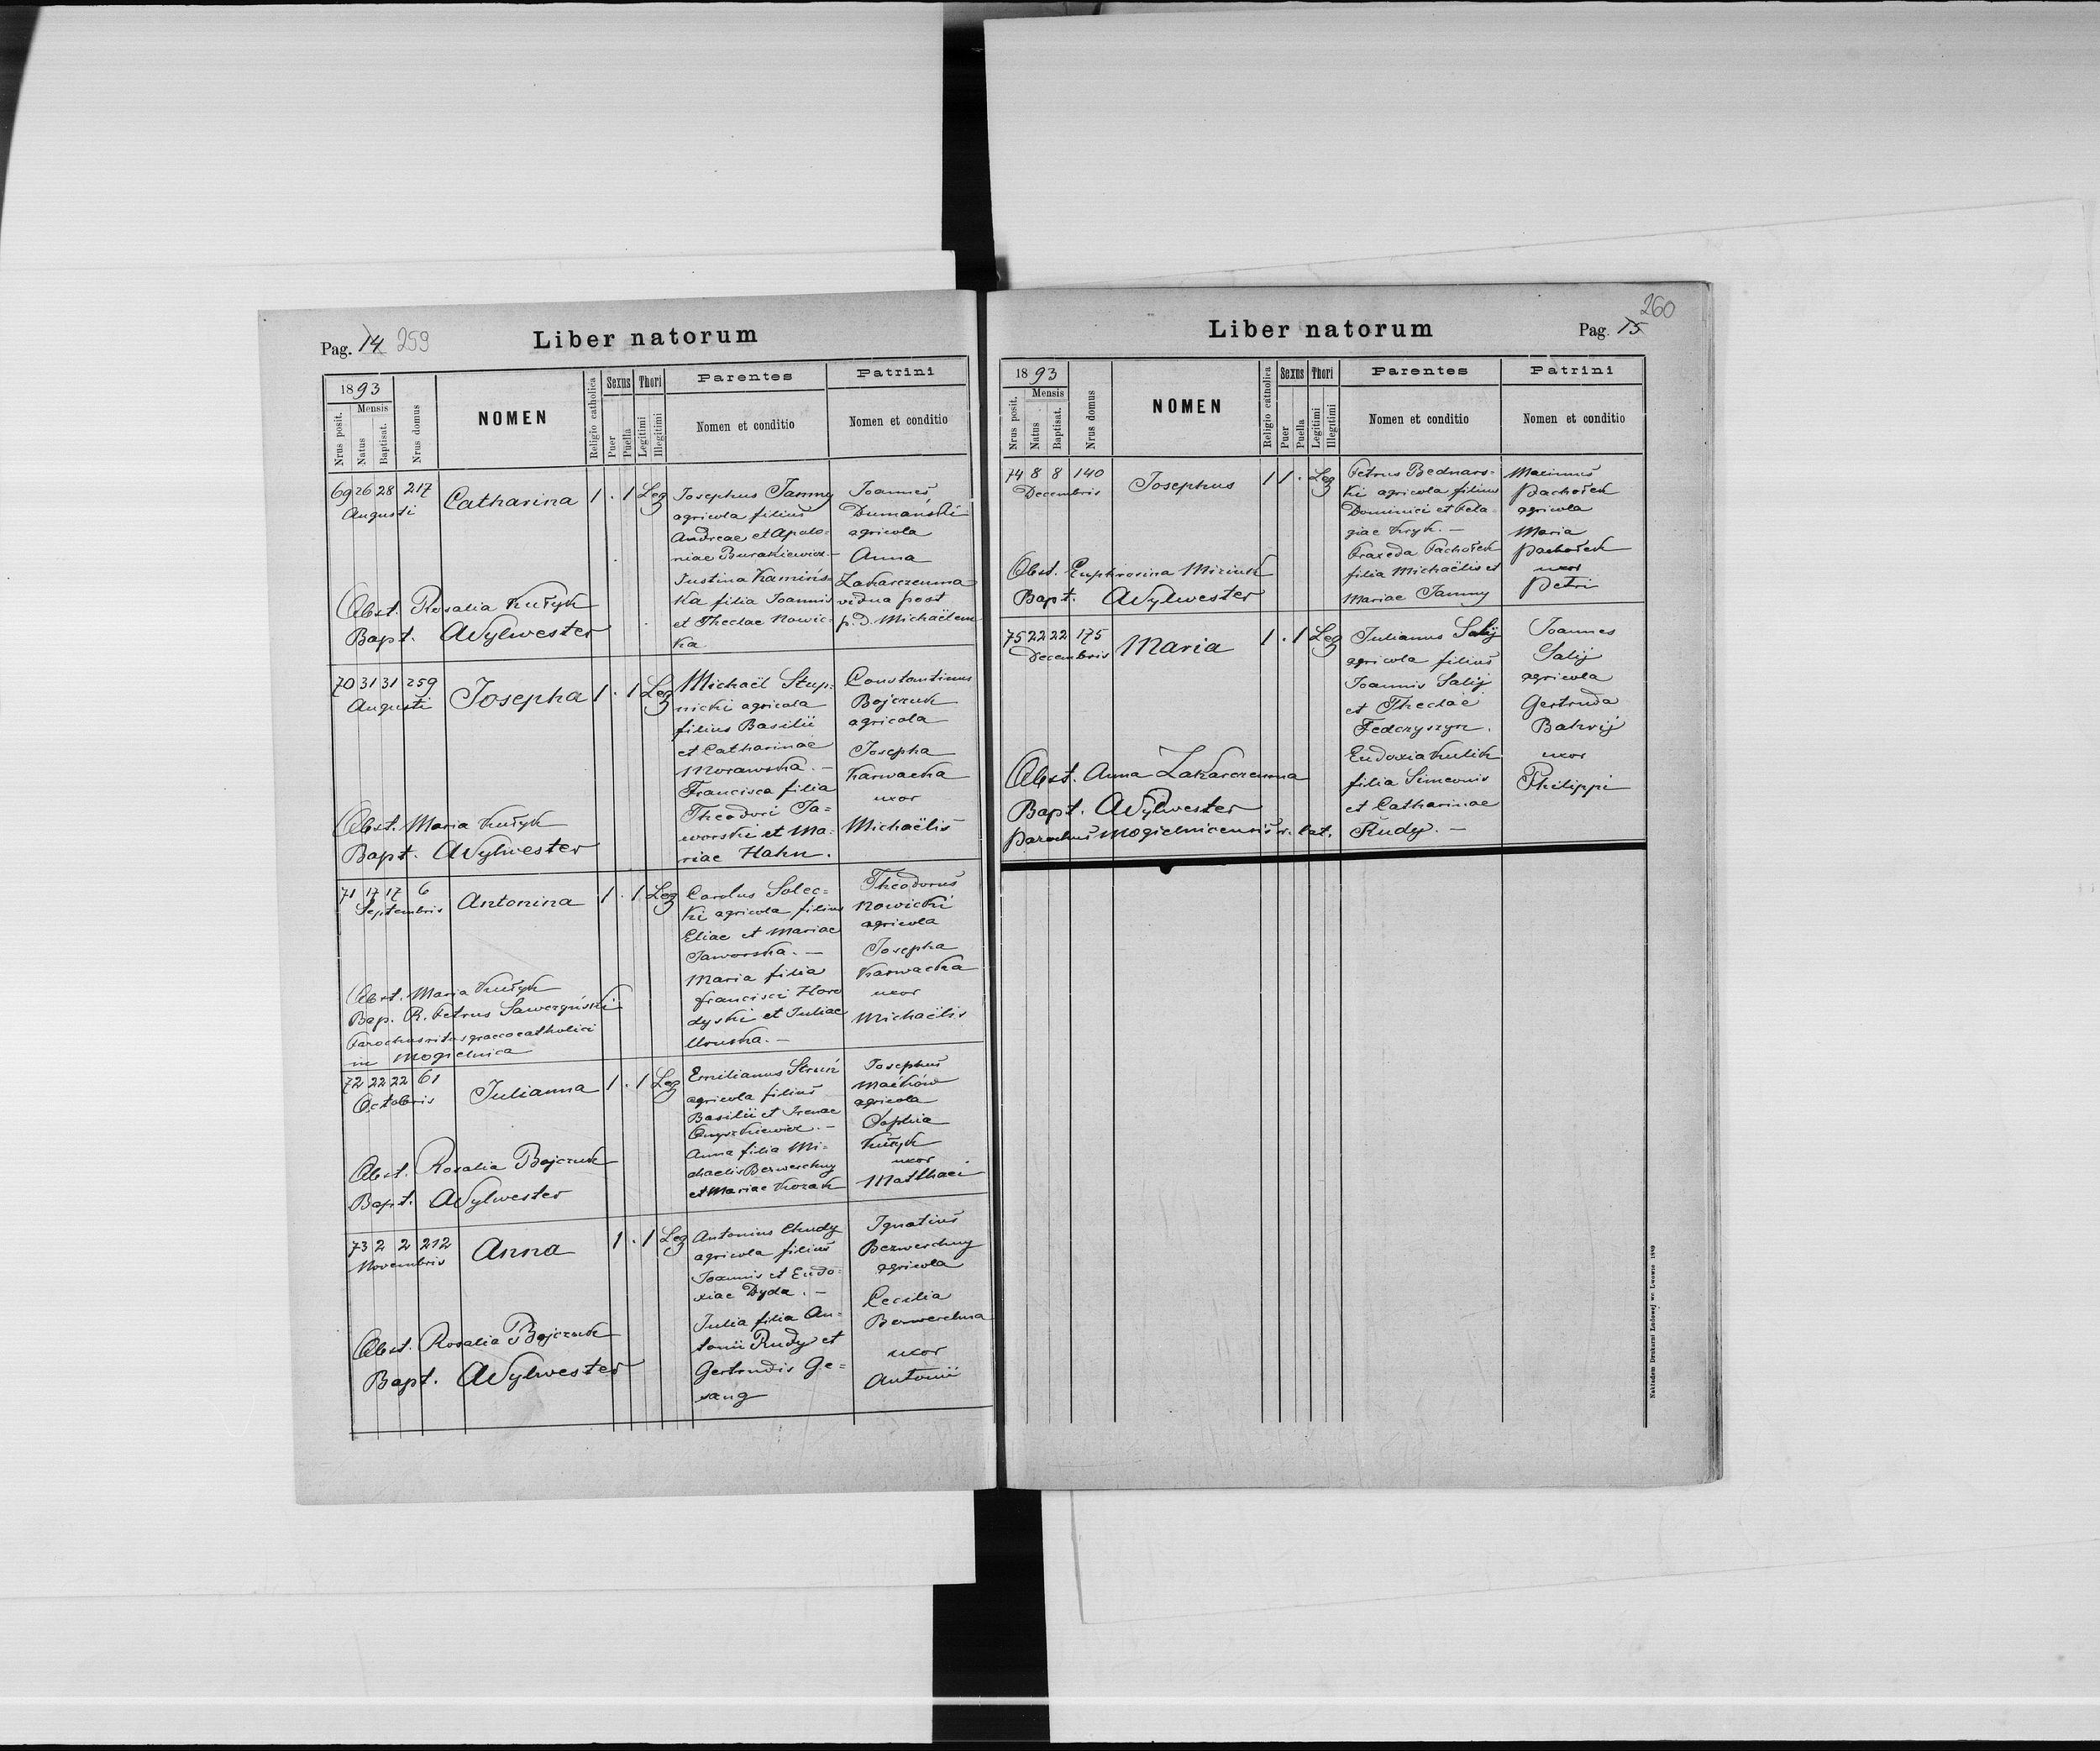 Pag. 14 259
Liber natorum
1893
Nrus posit.
Mensis
Natus
Baptisat.
Nrus domus
NOMEN
Religio catholica
Sexus
Puer
Puella
Thori
Legitimi
Illegitimi
Parentes
Nomen et conditio
Patrini
Nomen et conditio
69 26 28 217
Augusti
Catharina
1 . 1 Leg
Josephus Tammy
agricola filius
Andreae et Apolo=
niae Burakiewicz.—
Justina Kamińs=
ka filia Joannis
et Theclae Nowic=
ka.
Joannes
Dumański
agricola
Anna
Zakarczemna
vidua post
p. d. Michaëlem
Obst. Rosalia Kułyk
Bapt. AWylwester
70 31 31 259
Augusti
Josepha
1 . 1 Leg
Michaël Stup=
nicki agricola
filius Basilii
et Catharinae
Morawska.—
Francisca filia
Theodori Ja=
worski et Ma=
riae Hahn.
Constantinus
Bojczuk
agricola
Josepha
Karwacka
uxor
Michaëlis
Obst. Maria Kułyk
Bapt. AWylwester
71 17 17 6
Septembris
Antonina
1 . 1 Leg
Carolus Solec=
ki agricola filius
Eliae et Mariae
Jaworska.—
Maria filia
Francisci Horo
dyski et Juliae
Theodorus
Nowicki
agricola
Josepha
Karwacka
uxor
Michaëlis
Obst. Maria Kułyk
Bap. R. Petrus Sawczyński
Parochus ritus graeco catholici
in Mogielnica
72 22 22 61
Octobris
Julianna
1 . 1 Leg
Emilianus
agricola filius
Basilii et Irenae
Onyszkiewicz.—
Anna filia Mi=
chaelis Bezweschny
et Mariae Kozak
Josephus
Maćków
agricola
Sophia
Kułyk
uxor
Matthaei
Obst. Rosalia Bojczuk
Bapt. AWylwester
73 2 2 212
Novembris
Anna
1 . 1 Leg
Antonius Chudy
agricola filius
Joannis et Eudo=
xiae Dyda.—
Julia filia An=
tonii Rudy et
Gertrudis Ge=
sang
Ignatius
Bezweschny
agricola
Cecilia
uxor
Antonii
Obst. Rosalia Bojczuk
Bapt. AWylwester
260
Liber natorum
Pag. 15
1893
Nrus posit.
Mensis
Natus
Baptisat.
Nrus domus
NOMEN
Religio catholica
Sexus
Puer
Puella
Thori
Legitimi
Illegitimi
Parentes
Nomen et conditio
Patrini
Nomen et conditio
74 8 8 140
Decembris
Josephus
1 1 . Leg
Petrus Bednars=
ki agricola filius
Dominici et Pela
giae Kryk.—
Praxeda Pachołek
filia Michaëlis et
Mariae Tammy
Maximus
Pachołek
agricola
Maria
Pachołek
uxor
Petri
Obst. Euphrosina Miziuk
Bapt. AWylwester
75 22 22 175
Decembris
Maria
1 . 1 Leg
Julianus Salij
agricola filius
Joannis Salij
et Theclae
Fedczyszyn.
Eudoxia Kulik
filia Simeonis
et Catharinae
Rudy.—
Joannes
Salij
agricola
Gertruda
uxor
Philippi
Obst. Anna Zakarczemna
Bapt. AWylwester
parochus Mogielnicensis r. lat.
Nakładem Drukarni Ludowej we Lwowie